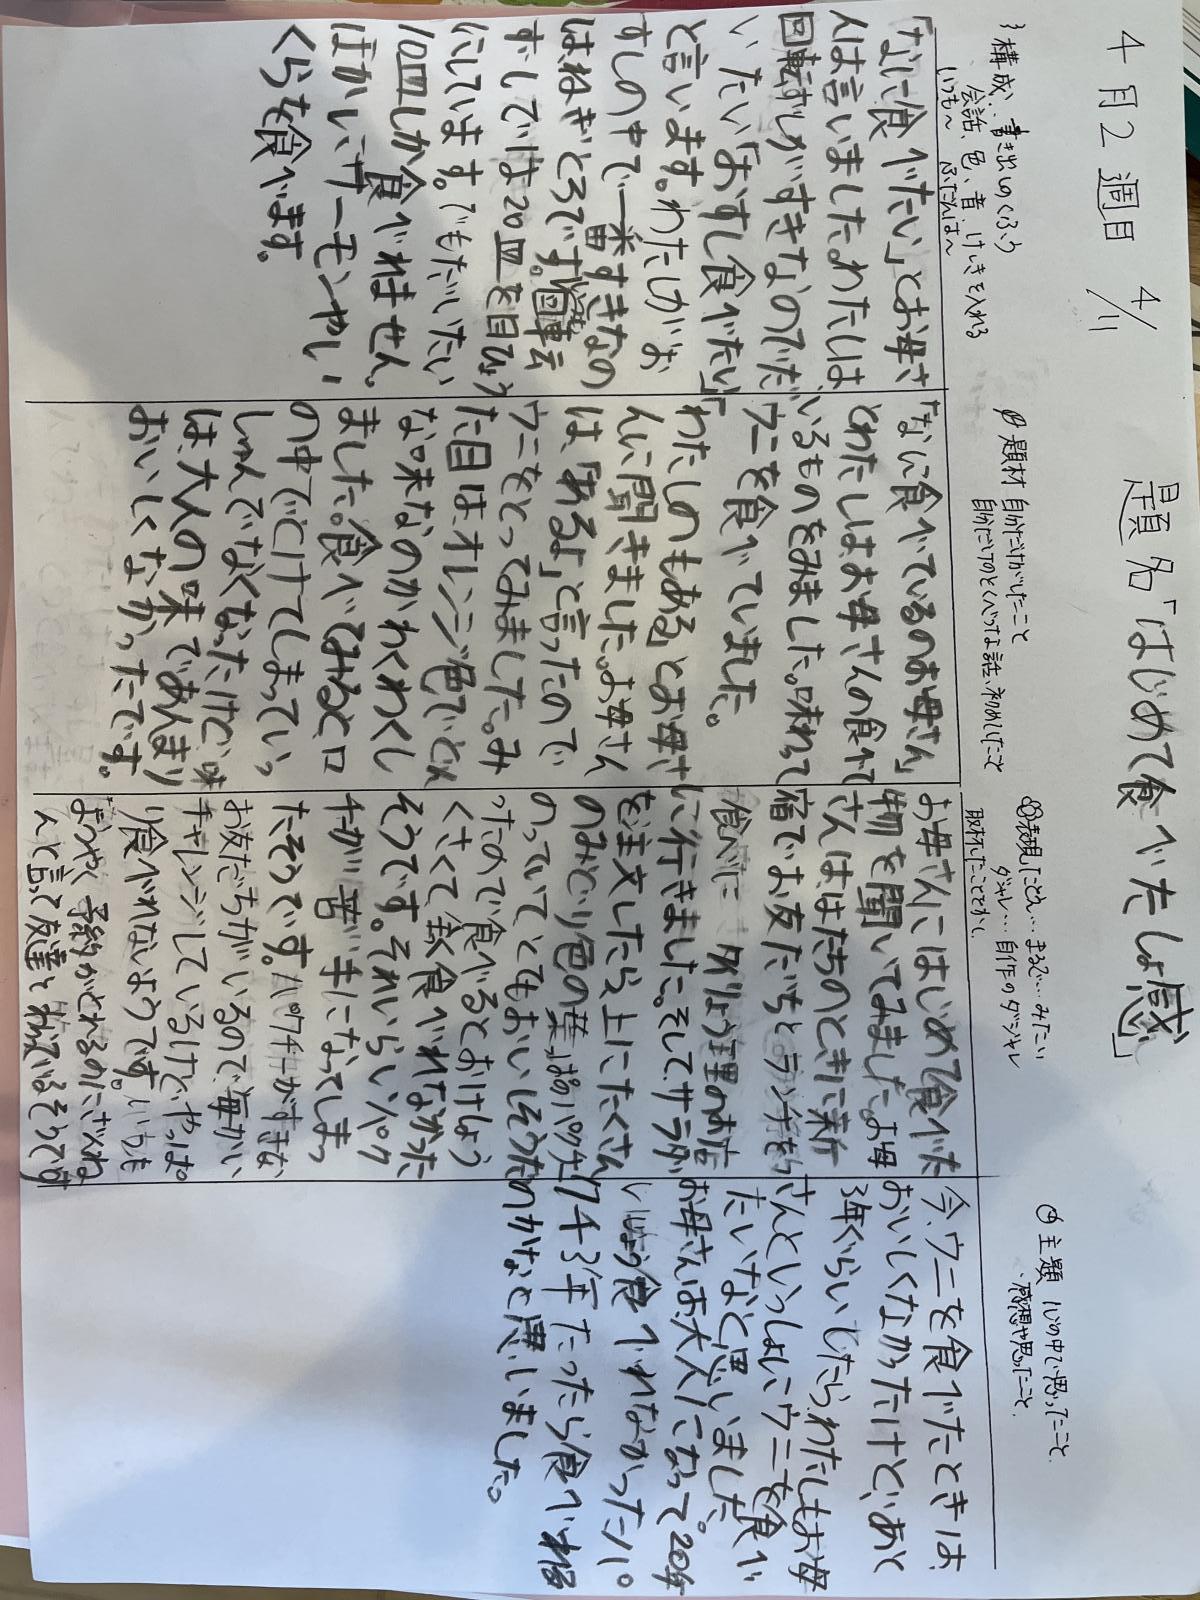 4月2週目 4/11
題名「はじめて食べたしょ感」
構成、書き出しのくふう
会話、色、音、けしきを入れる
いつも〜 ふだんは〜
「なに食べたい」とお母さ
んは言いました。わたしは、
回転ずしがすきなのでだ
いたい「おすし食べたい」
と言います。わたしがお
すしの中で一番すきなの
はねぎとろです。回転
ずしでは20皿を目ひょう
にしています。でもだいたい
10皿しか食べれません。
ほかに、サーモンやい
くらを食べます。
題材 自分だけがしたこと
自分だけのとくべつな話、初めてしたこと
「なに食べているのお母さん」
とわたしはお母さんの食べて
いるものをみました。味わって
ウニを食べていました。
「わたしのもある」とお母さ
んに聞きました。お母さん
は「あるよ」と言ったので
ウニをとってみました。み
た目はオレンジ色でどん
な味なのかわくわくし
ました。食べてみると口
の中でとけてしまっていっ
しゅんでなくなったけど、味
は大人の味であんまり
おいしくなかったです。
表現 たとえ…まるで…みたい
ダジャレ…自作のダジャレ
お母さんにはじめて食べた
物を聞いてみました。お母
さんははたちのときに新
宿でお友だちとランチを
食べに
料り理のお店
に行きました。そしてサラダ
を注文したら上にたくさん
のみどり色の葉っぱのパクチー
のっていてとてもおいしそうだ
ったので食べるとおけしょう
くさくて全然食べれなかった
そうです。それいらいパク
チーが苦手になってしまっ
たそうです。パクチーがすきな
お友だちがいるので毎かい
チャレンジしているけど、やっぱ
り食べれないようです。いつも
と言って友達とわらっているそうです
主題 心の中で思ったこと
感想や思ったこと
今、ウニを食べたときは
おいしくなかったけど、あと
3年ぐらいしたらわたしもお母
さんといっしょにウニを食べ
たいなと思いました。
お母さんは大人になって20年
いじょう食べれなかったパ
クチー3年たったら食べれる
のかなと思いました。